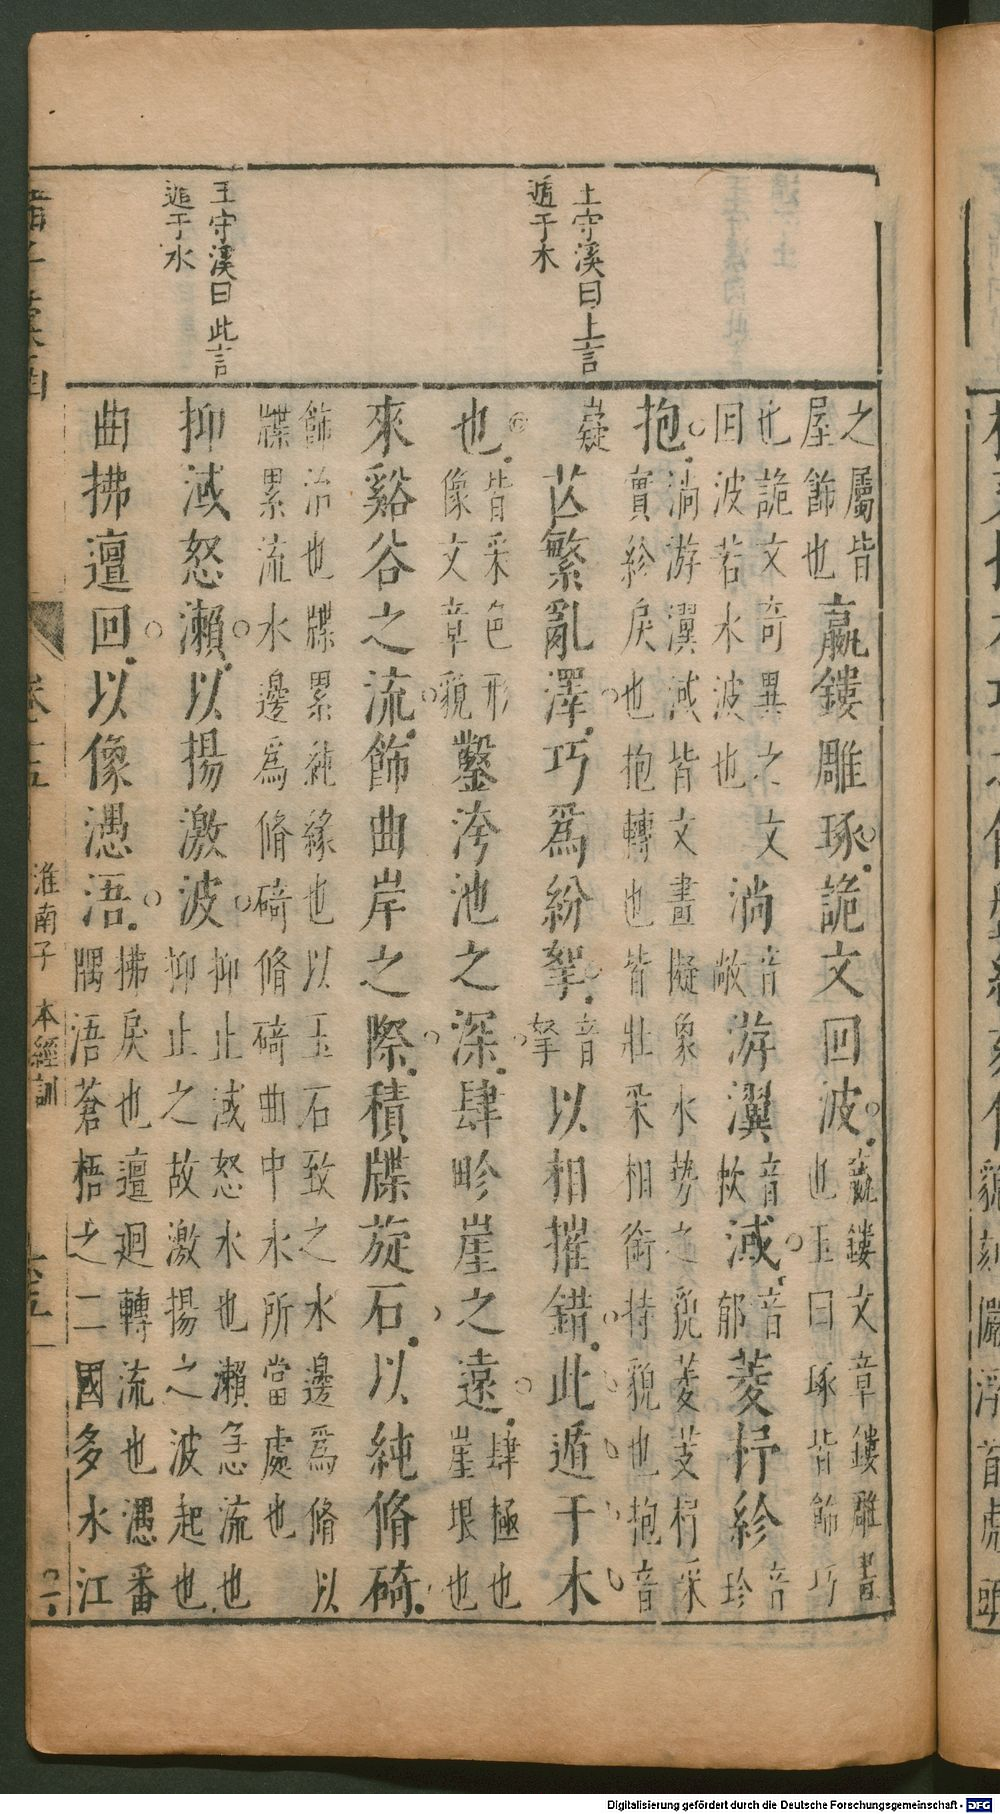 王守溪曰上言
遁于木
王守溪曰此言
遁于水
之屬皆
屋飾也
嬴鏤雕琢詭文回波
嬴鏤文章鏤雕書
也玉曰琢皆飾巧
也詭文奇異之文
回波若水波也
淌
音
敞
游瀷
音
㰟
淢
音
郁
菱杼紾
音
珍
抱
淌游瀷淢皆文畫擬象水勢之貌菱芰杼采
實紾戾也抱轉也皆壯采相銜持貌也抱音
嶷
芒繁亂澤巧爲紛挐
音
拏
以相摧錯此遁于木
也
皆采色形
像文章貌
鑿洿池之深肆畛崖之遠
肆極也
崖垠也
來谿谷之流飾曲岸之際積牒旋石以純脩碕
飾治也牒累純緣也以玉石致之水邊爲脩以
牒累流水邊爲脩碕脩碕曲中水所當處也
抑淢怒瀨以揚激波
抑止淢怒水也瀨急流也
抑止之故激揚之波起也
曲拂邅回以像湡浯
拂戾也邅迴轉流也湡番
隅浯蒼梧之二國多水江
卷十五
淮南子
本經訓
Digitalisierung gefördert durch die Deutsche Forschungsgemeinschaft - DFG